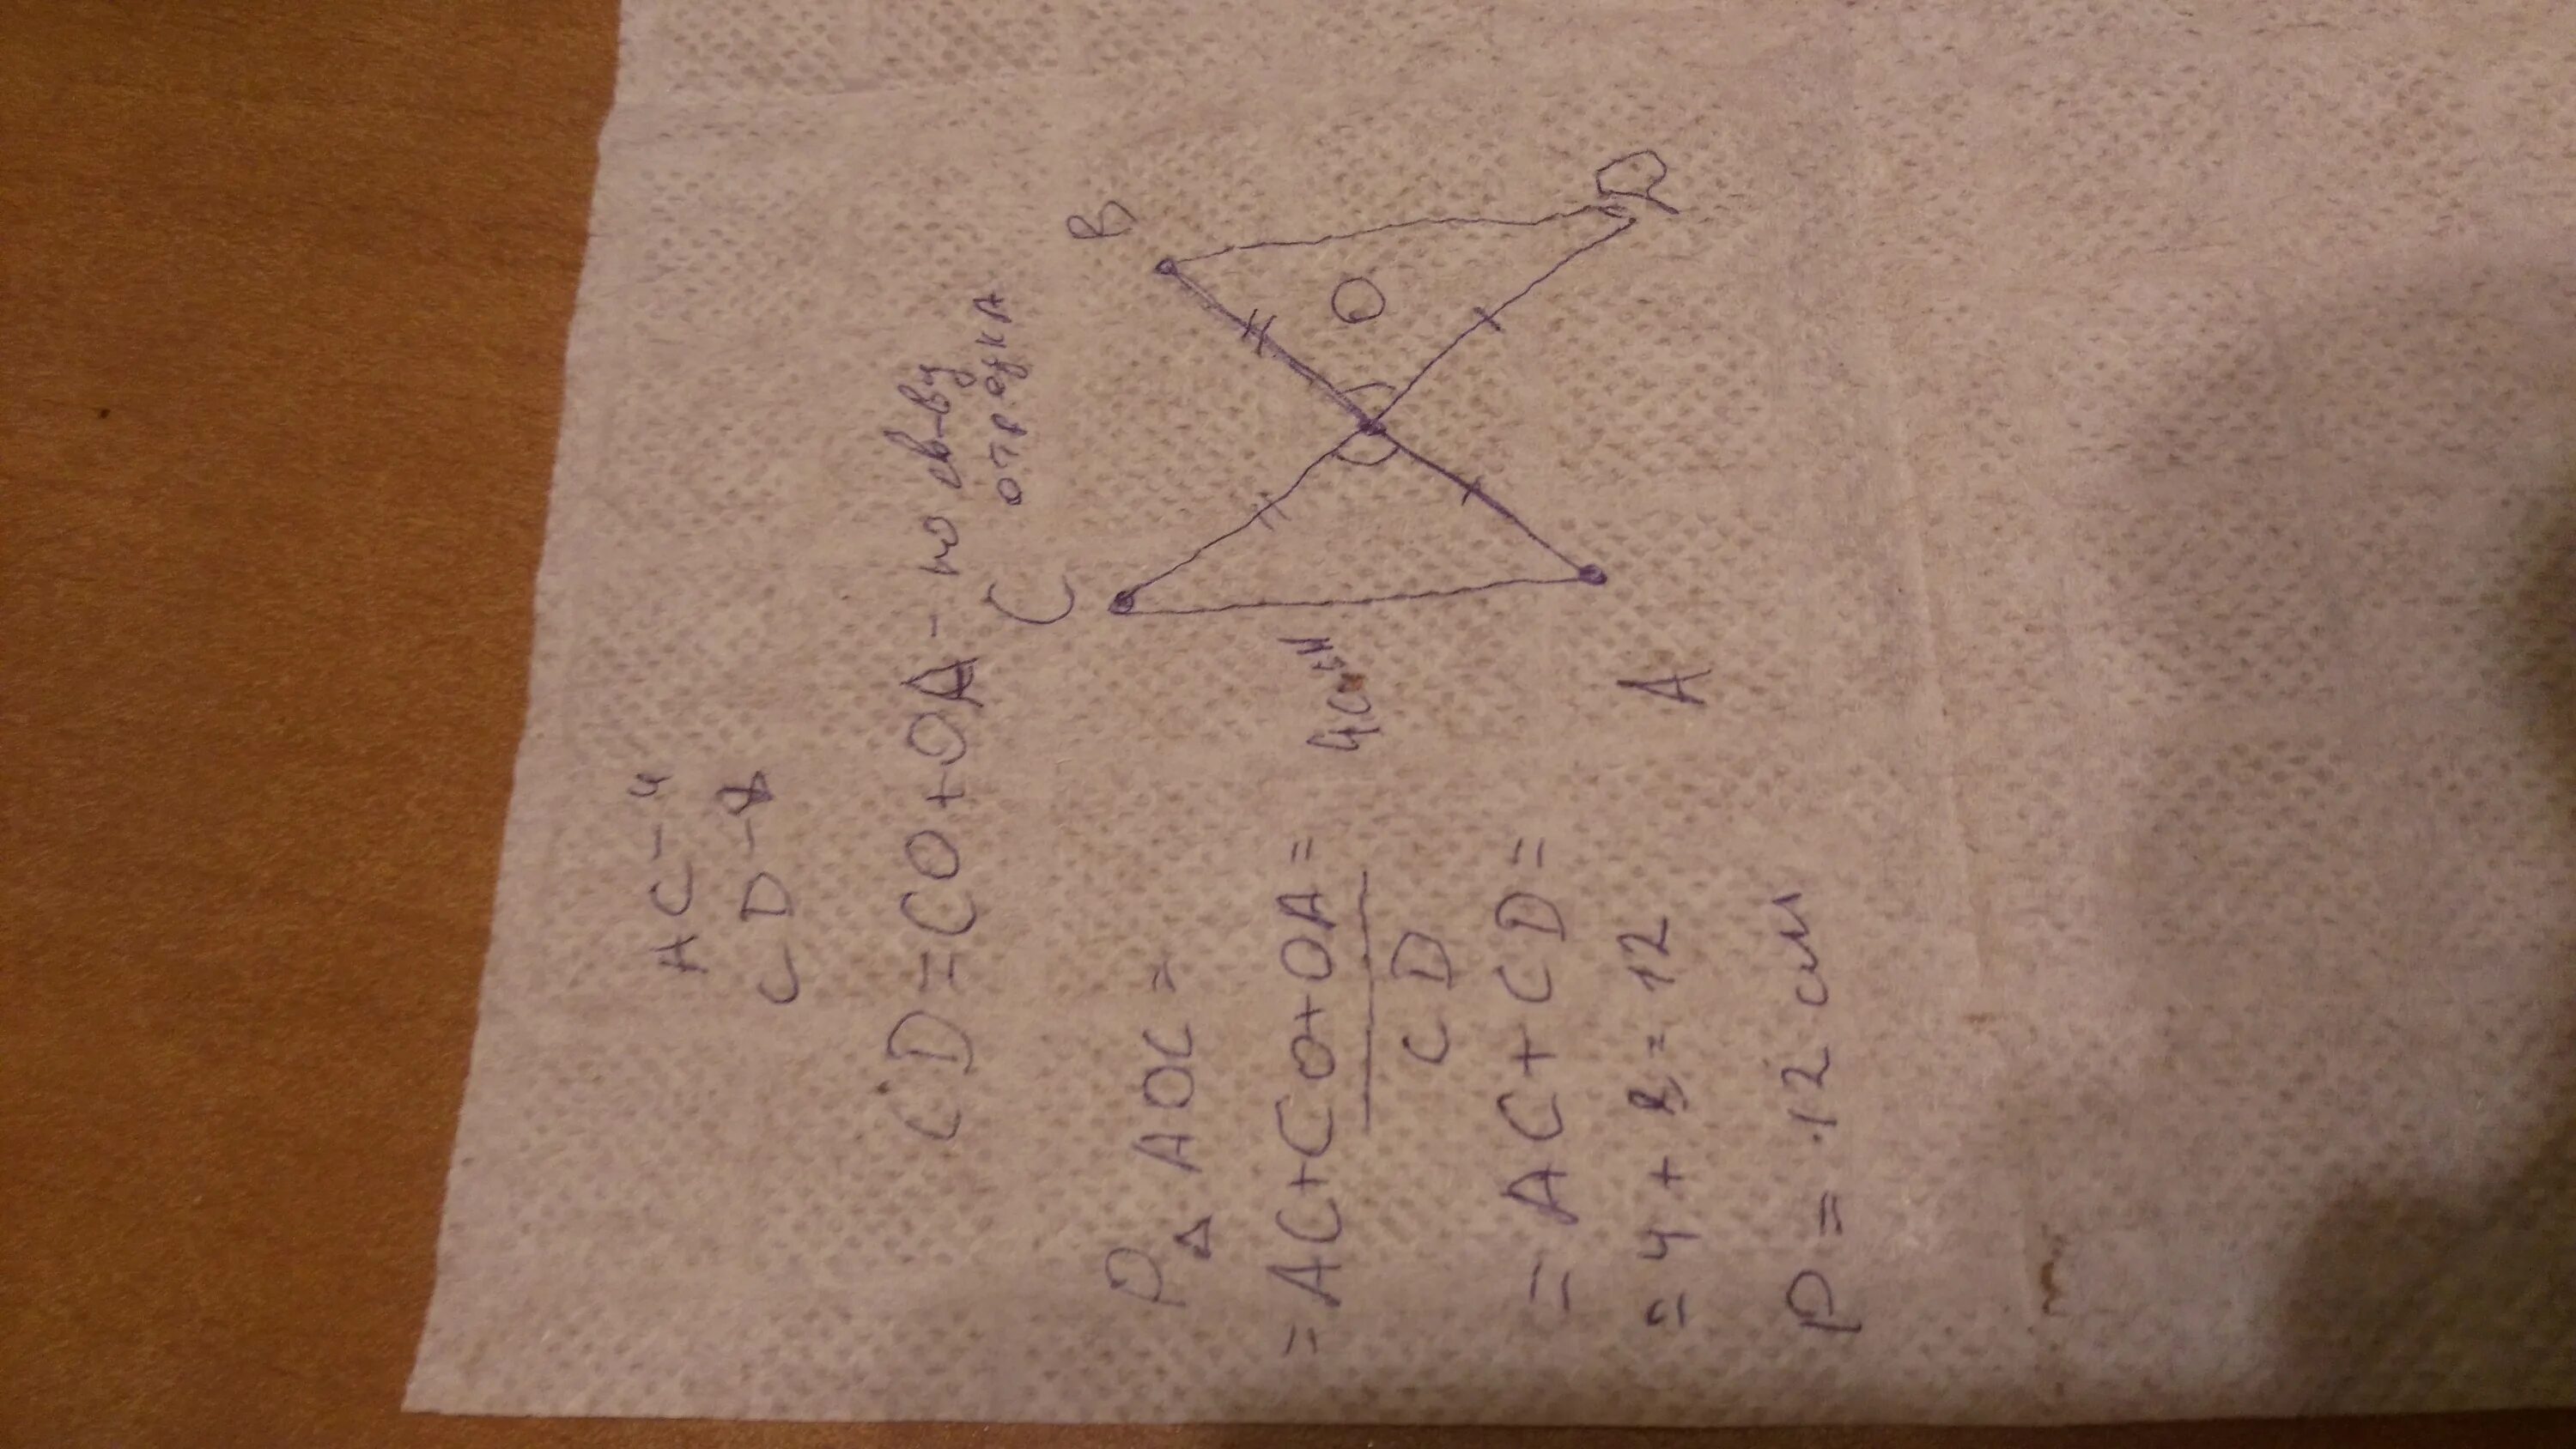 AC - 4
CD - 8
CD = CO + OA - по св-ву
отрезка
C
B
O
4 см
A
D
P△ AOC =
= AC + CO + OA =
CD
= AC + CD =
= 4 + 8 = 12
P = 12 см